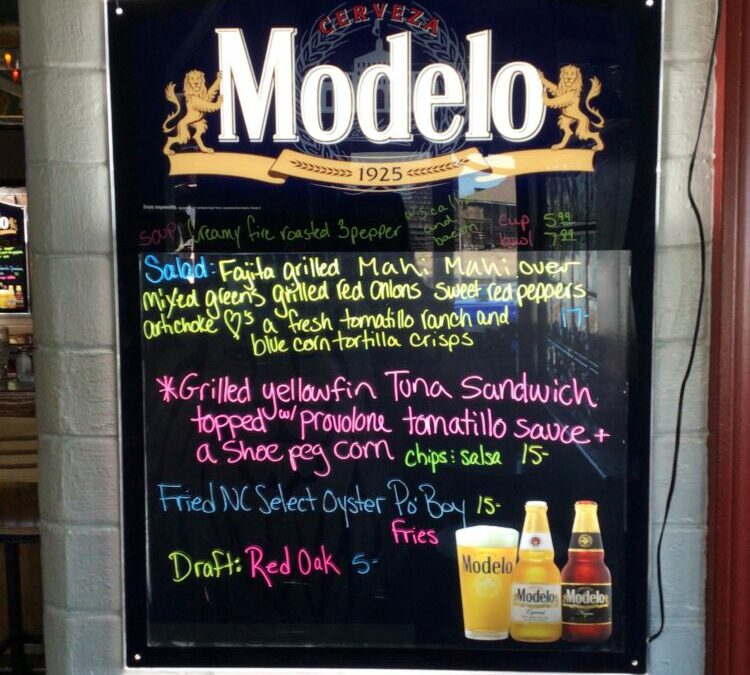 CERVEZA
Modelo
1925
Drink responsibly.
Soup: Creamy fire roasted 3 pepper w/ scallions and bacon cup 5.99
bowl 7.99
Salad: Fajita grilled Mahi Mahi over
mixed greens grilled red onions sweet red peppers
artichoke ♡'s a fresh tomatillo ranch and 17-
blue corn tortilla crisps
*Grilled yellowfin Tuna Sandwich
topped w/ provolone tomatillo sauce +
a Shoe peg corn chips: salsa 15-
Fried NC Select Oyster Po'Boy 15-
Fries
Draft: Red Oak 5-
Modelo
Modelo
Especial
Modelo
Negra